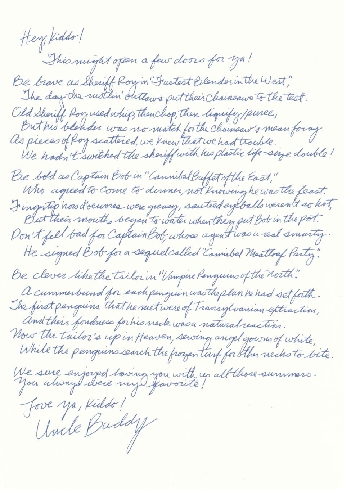 Hey, Kiddo!
This might open a few doors for ya!
Be brave as Sheriff Roy in "Fastest Blender in the West,"
The day the rustlin' outlaws put their chainsaws to the test.
Old Sheriff Roy used whip, then chop, then liquify/puree,
But his blender was no match for the chainsaw's mean foray
As pieces of Roy scattered, we knew that we had trouble.
We hadn't switched the sheriff with his plastic life-size double!
Be bold as Captain Bob in "Cannibal Buffet of the East,"
Who agreed to come to dinner not knowing he was the feast.
Fingertip hors d'oeuvres were greasy, sautéed eyeballs weren't so hot,
But their mouths began to water when they put Bob in the pot.
Don't feel bad for Captain Bob, whose agent was a real smarty.
He signed Bob for a sequel called "Cannibal Meatloaf Party."
Be clever like the tailor in "Vampire Penguins of the North."
A cummerbund for each penguin was the plan he had set forth.
The first penguins that he met were of Transylvanian extraction,
And their fondness for his neck was a natural reaction.
Now the tailor's up in Heaven, sewing angel gowns of white,
While the penguins search the frozen turf for other necks to bite.
We sure enjoyed having you with us all those summers.
You always were my favorite!
Love ya, Kiddo!
Uncle Buddy